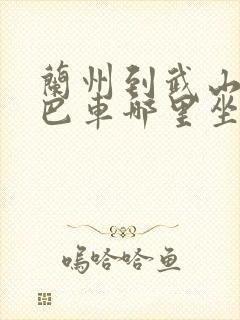 蘭州到武山
巴車哪里坐
嗚哈哈鱼